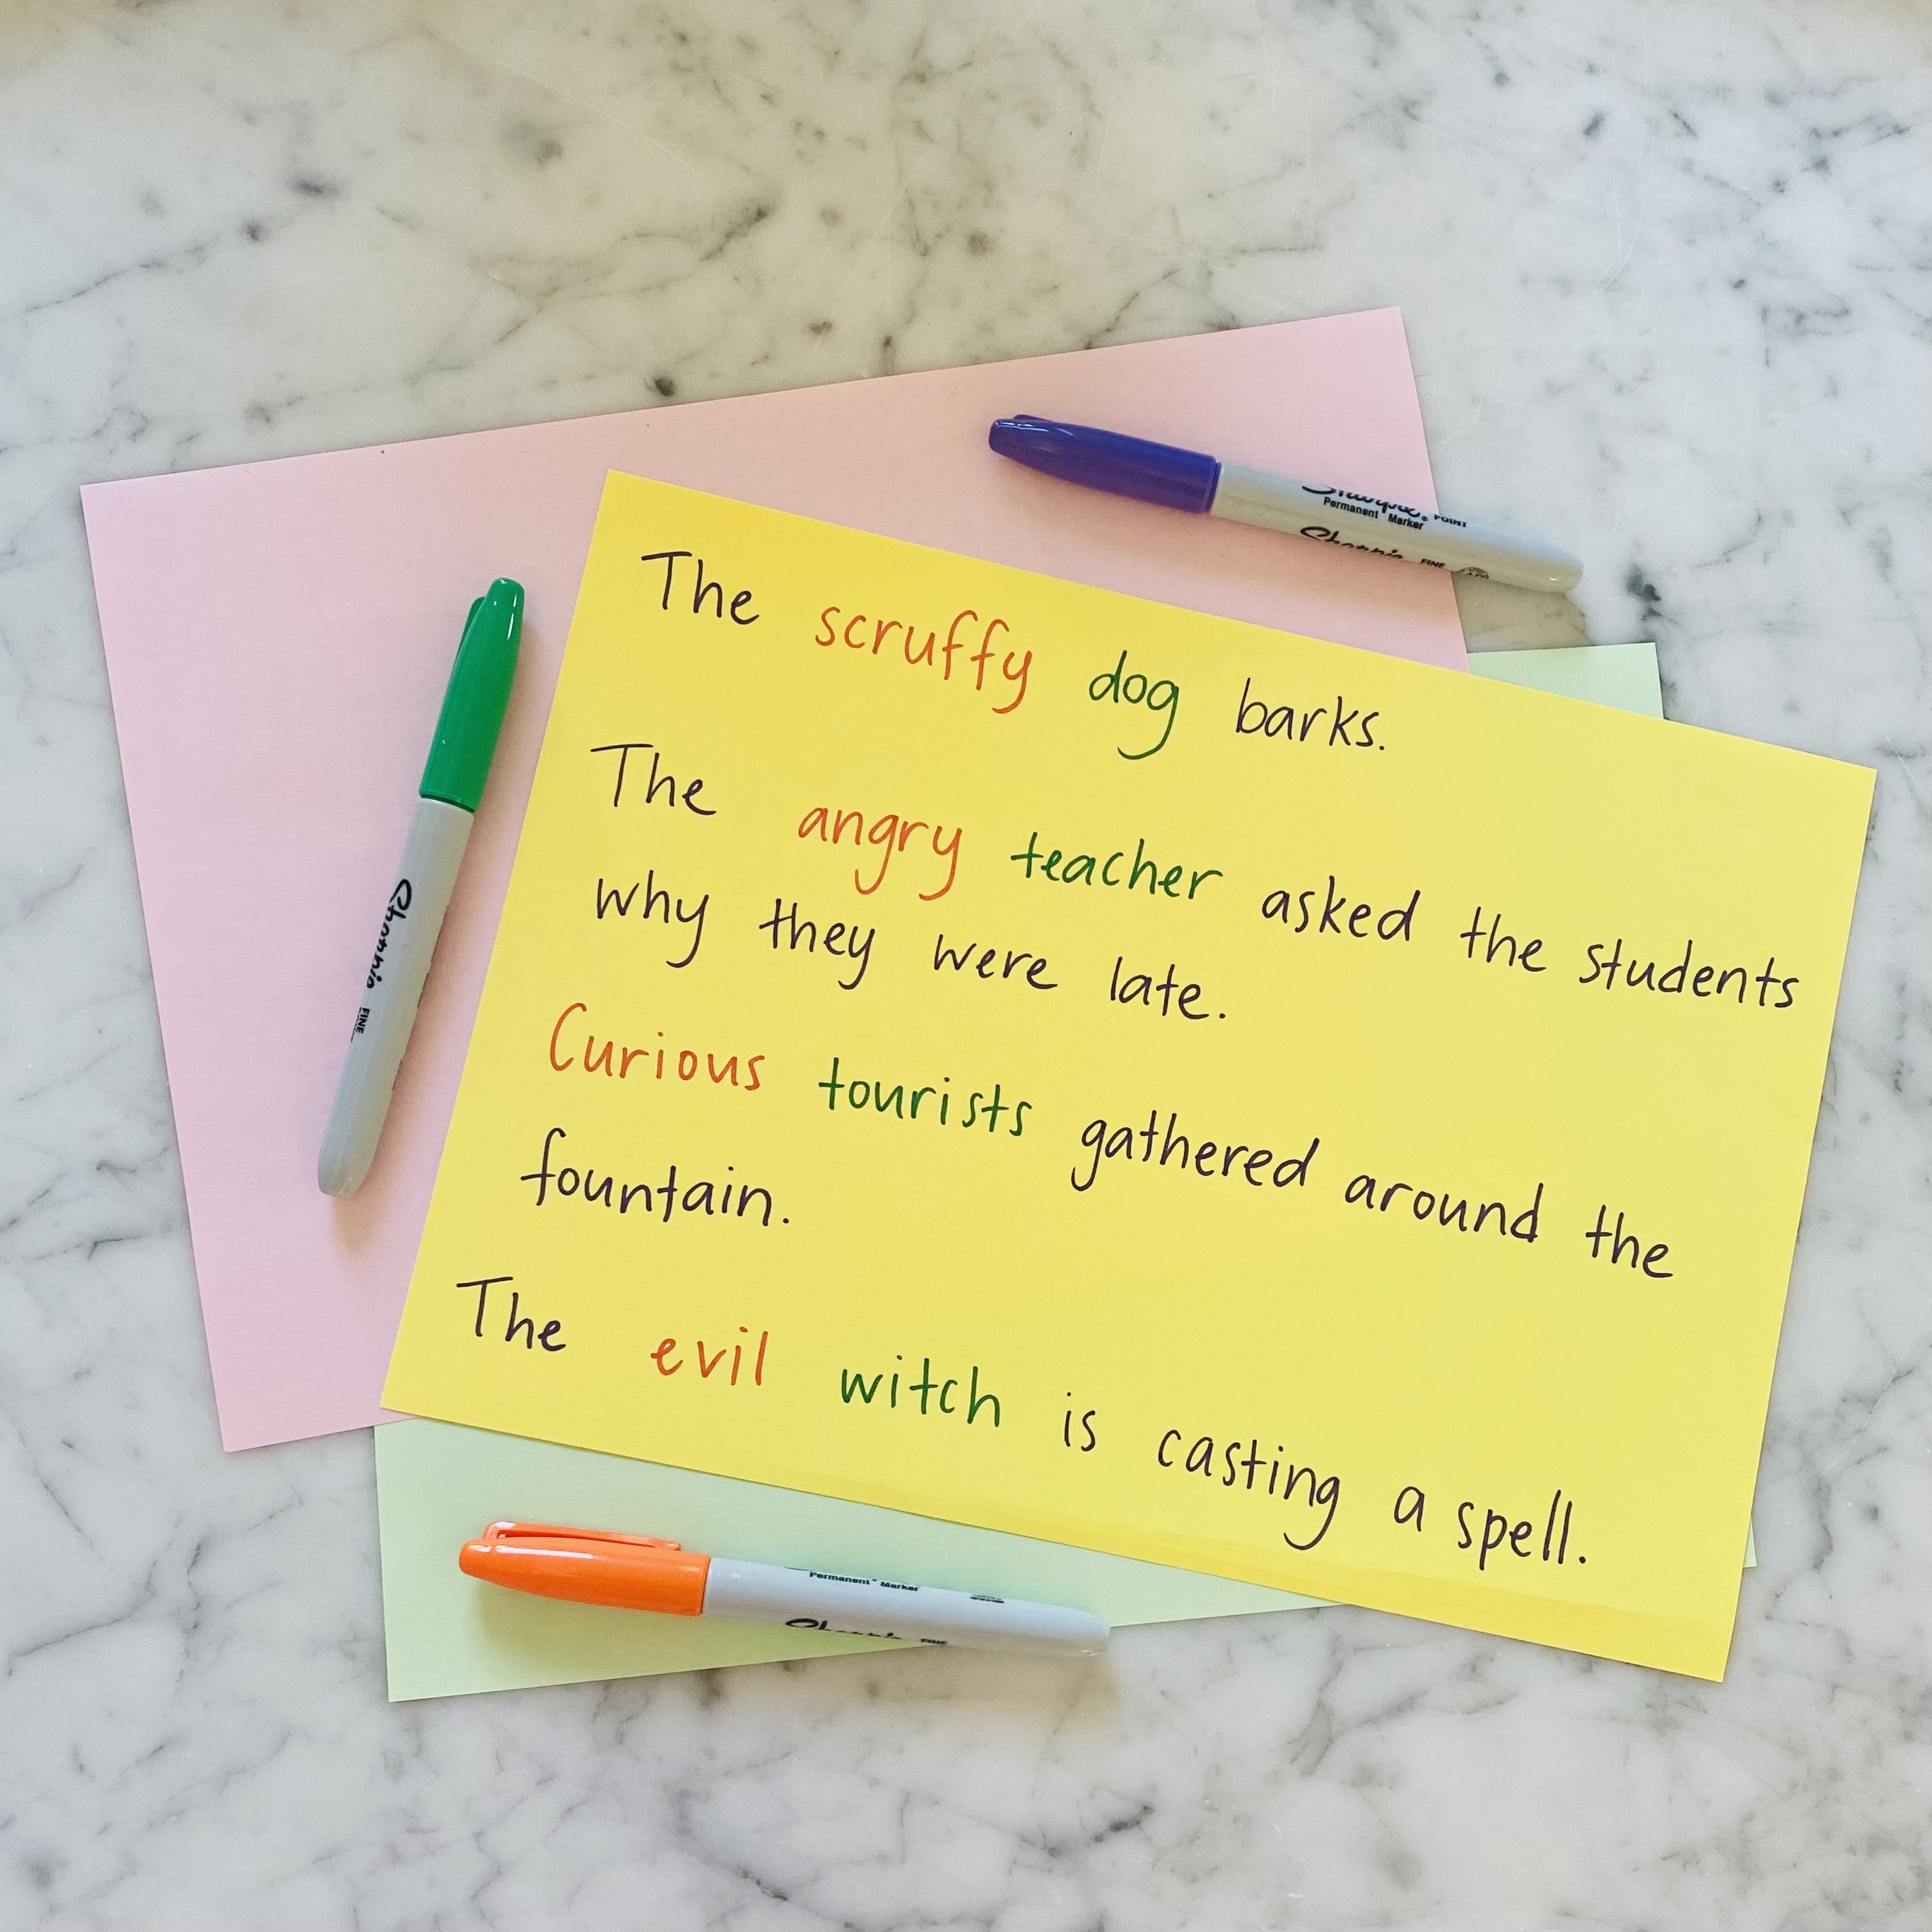 Sharpie
Permanent Marker POINT
Sharpie FINE
The scruffy dog barks.
The angry teacher asked the students
why they were late.
Curious tourists gathered around the
fountain.
The evil witch is casting a spell.
Sharpie FINE
Permanent Marker
Sharpie FINE